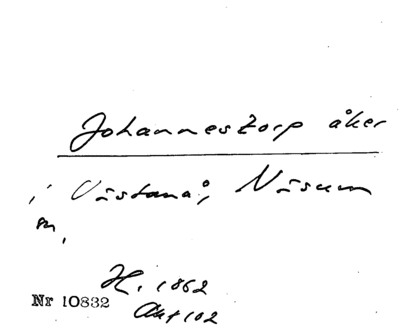 Johannestorp åker
i Västanå, Näsum
m.
H. 1862
Akt 102
Nr 10832